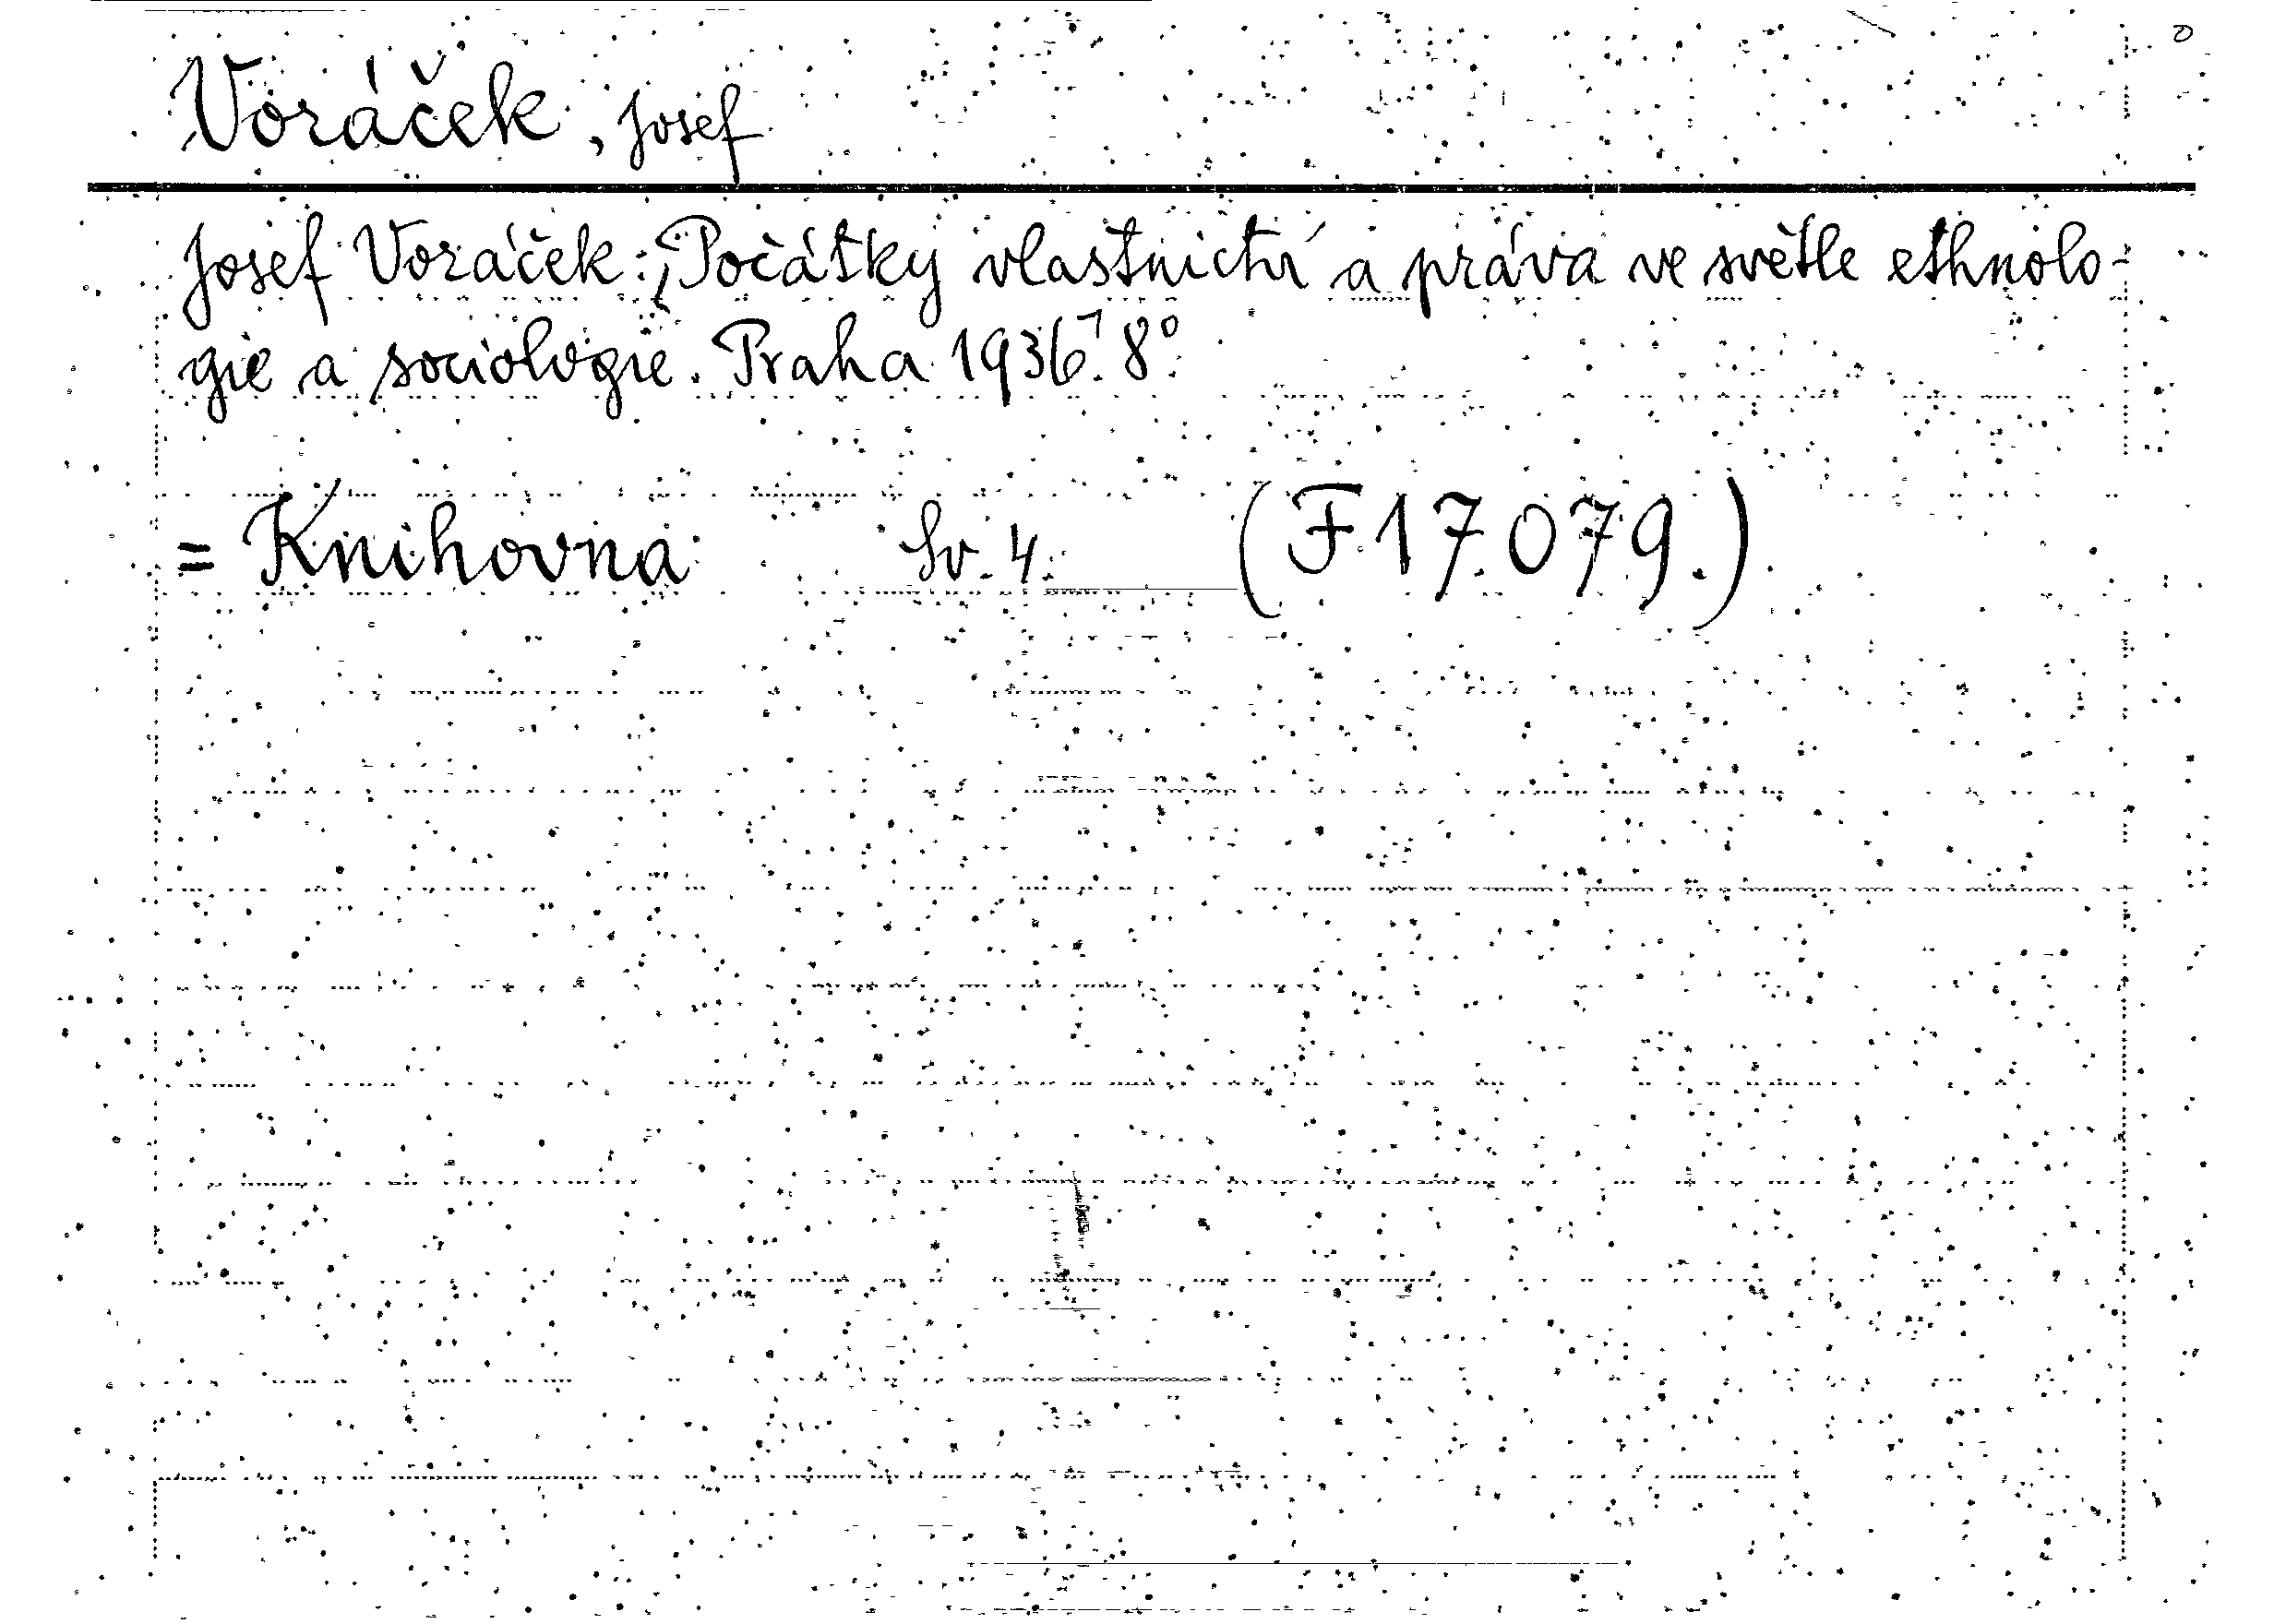 Voráček, Josef
Josef Voráček: Počátky vlastnictví a práva ve světle ethnolo-
gie a sociologie. Praha 1936. 8°.
= Knihovna Sv. 4. (F 17.079.)